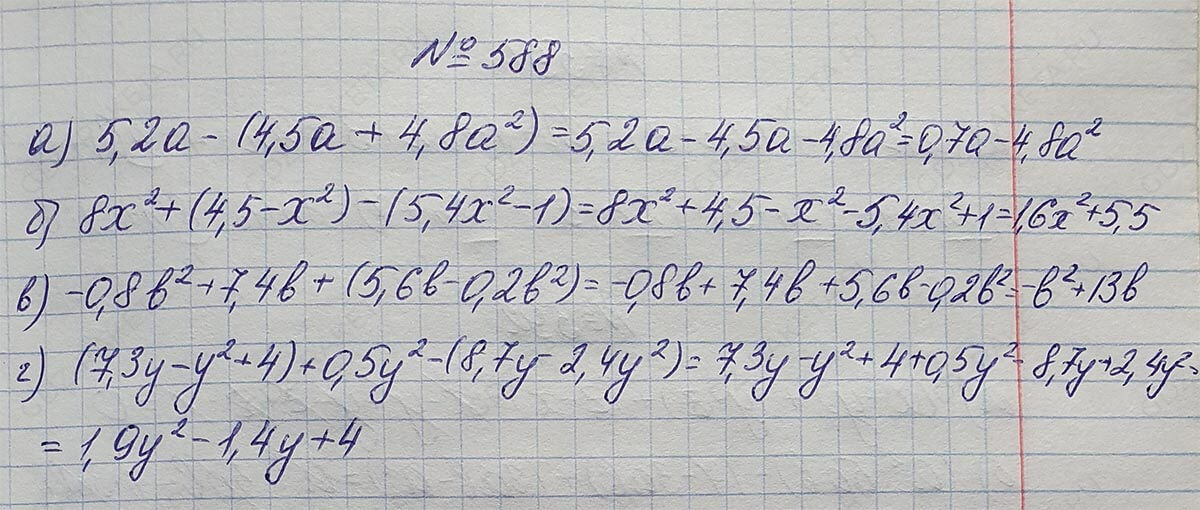 № 588
а) 5,2a - (4,5a + 4,8a²) = 5,2a - 4,5a - 4,8a² = 0,7a - 4,8a²
б) 8x² + (4,5 - x²) - (5,4x² - 1) = 8x² + 4,5 - x² - 5,4x² + 1 = 1,6x² + 5,5
в) -0,8b² + 7,4b + (5,6b - 0,2b²) = -0,8b + 7,4b + 5,6b - 0,2b² = -b² + 13b
г) (7,3y - y² + 4) + 0,5y² - (8,7y - 2,4y²) = 7,3y - y² + 4 + 0,5y² - 8,7y + 2,4y² =
= 1,9y² - 1,4y + 4